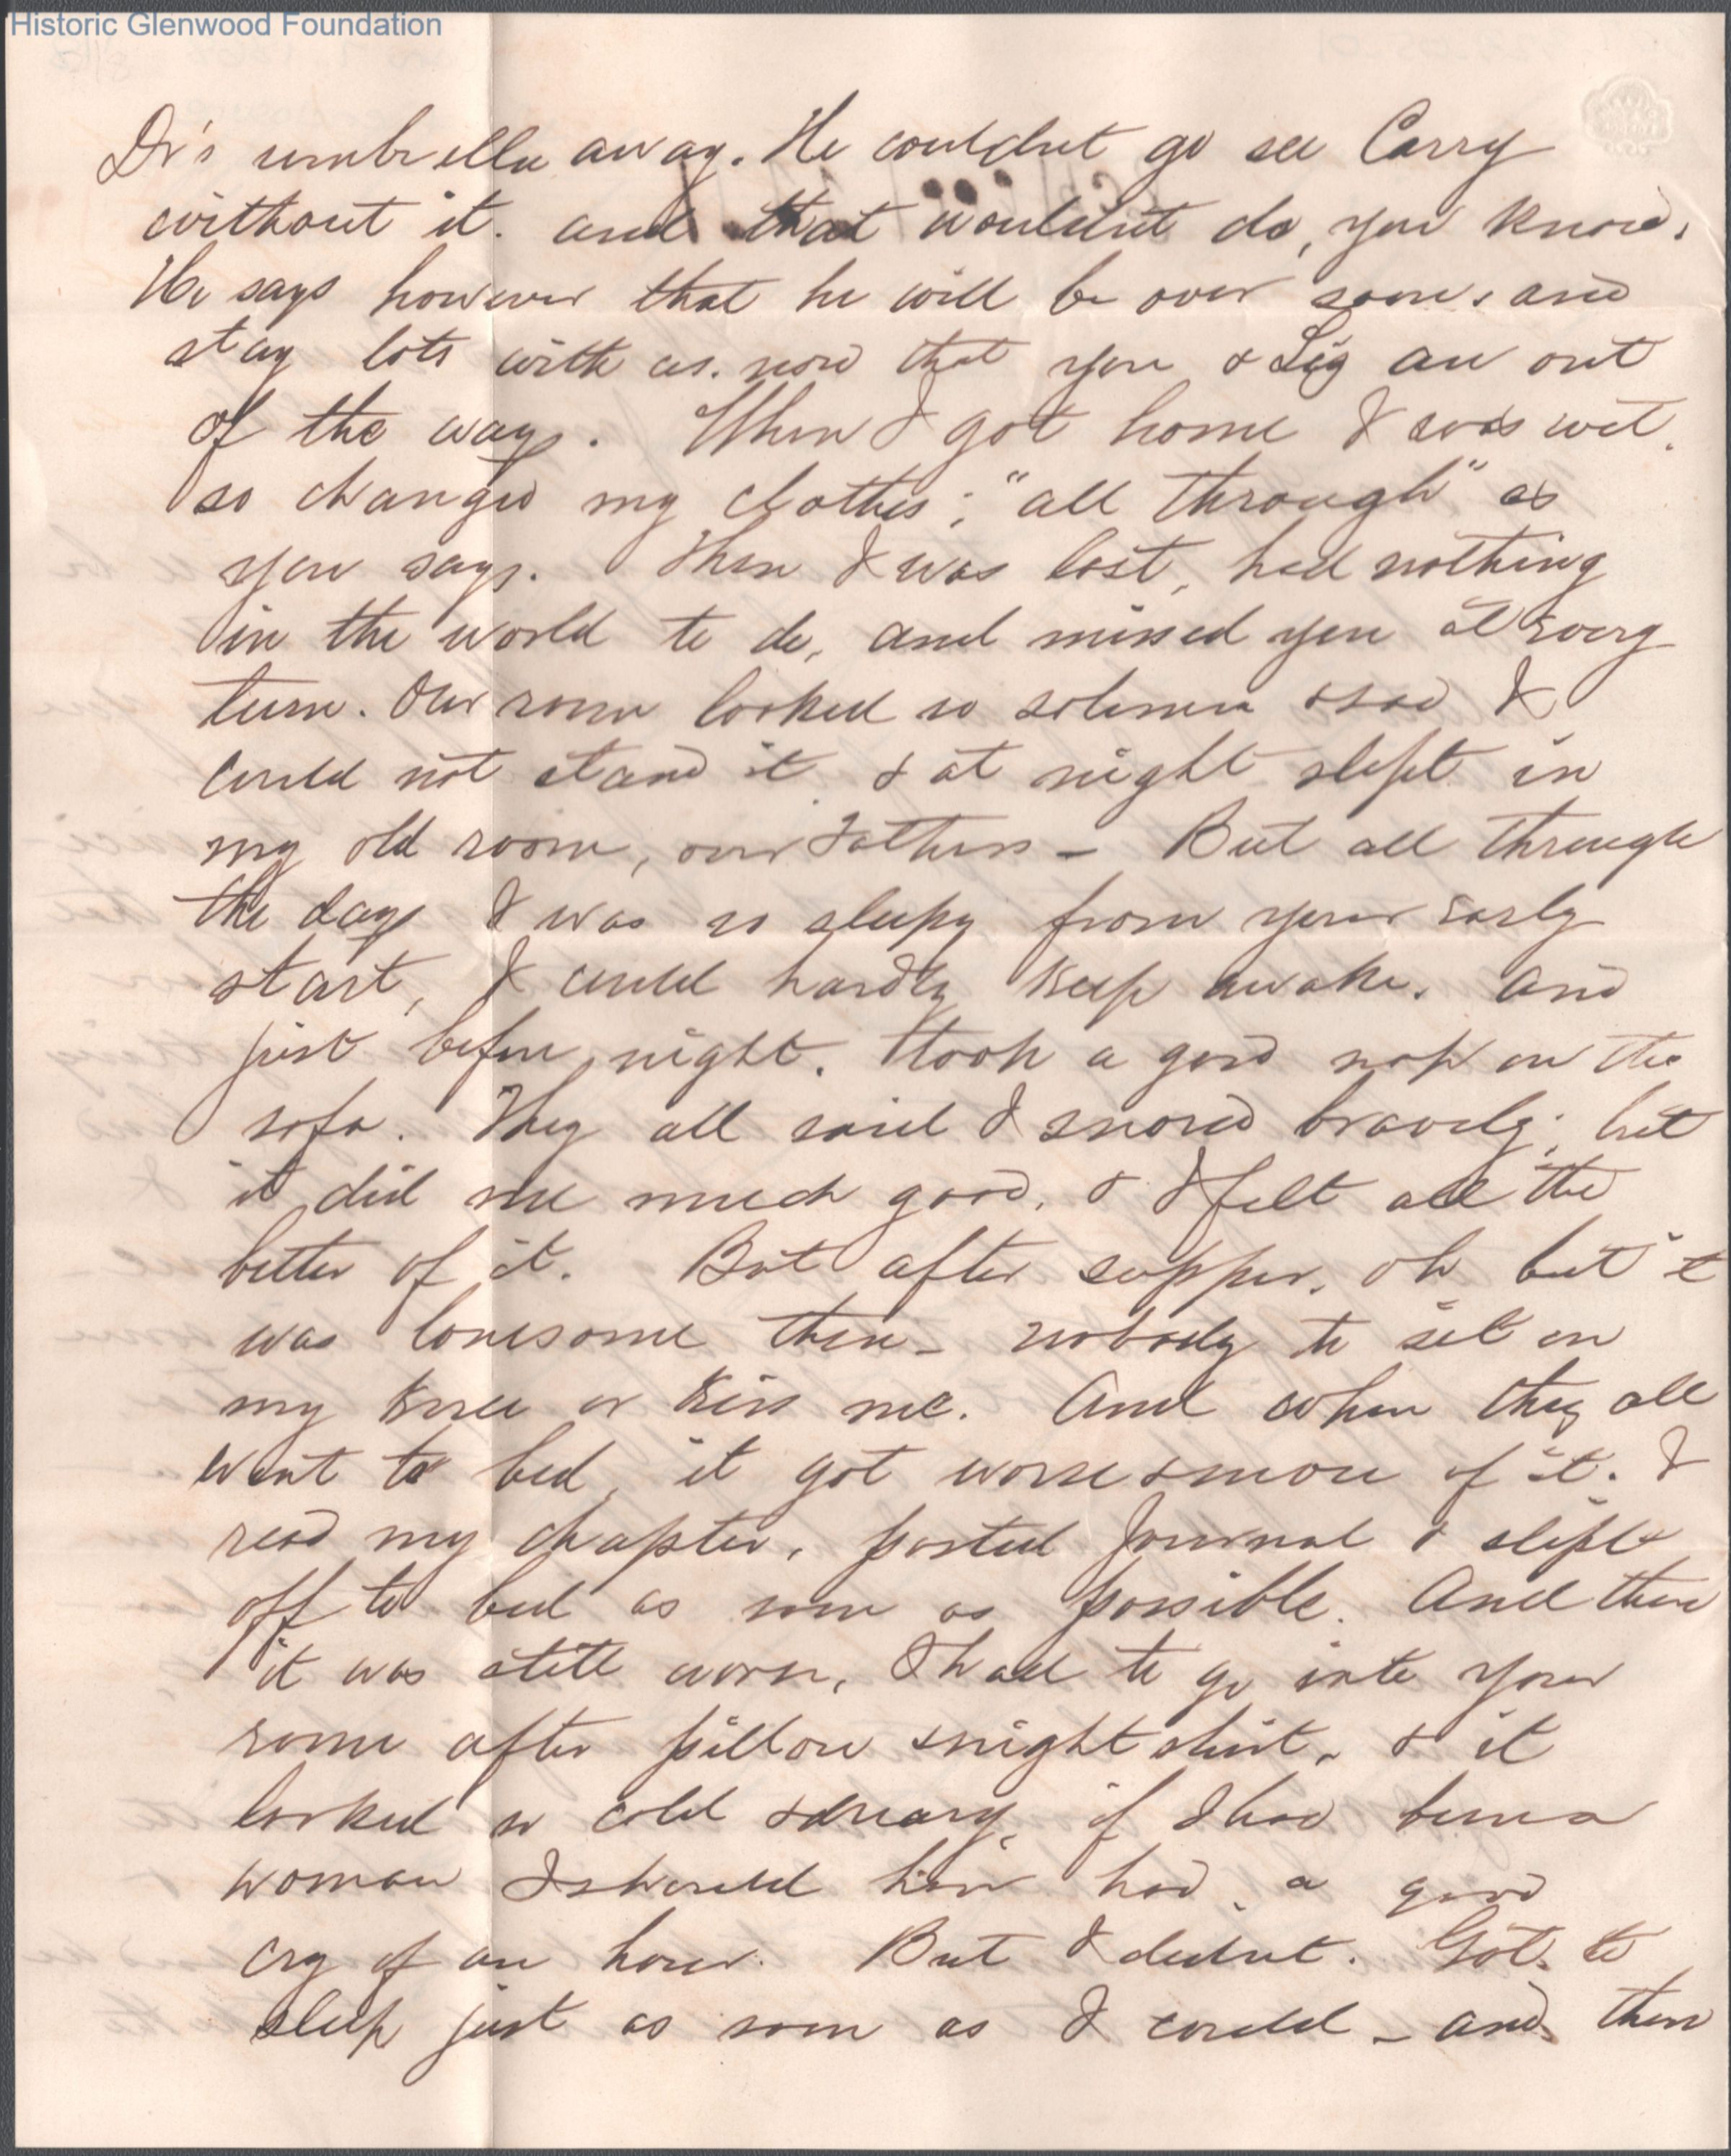 Historic Glenwood Foundation
Dr's umbrella away. He couldnt go see Carry
without it. and that wouldnt do, you know.
He says however that he will be over soon, and
stay lots with us. now that you & Sig are out
of the way. When I got home I was wet.
so changed my clothes; "all through" as
you say. Then I was lost, had nothing
in the world to do, and missed you at every
turn. Our room looked so solemn & sad I
could not stand it & at night slept in
my old room, over Fathers - But all through
the day I was so sleepy from your early
start, I could hardly keep awake. And
just before night. I took a good nap on the
sofa. They all said I snored bravely; but
it did me much good, & I felt all the
better of it. But after supper, oh but it
was lonesome then - nobody to sit on
my knee or kiss me. And when they all
went to bed, it got worse & more of it. I
read my chapter, posted Journal & slipt
off to bed as soon as possible. And then
it was still worse, I had to go into your
room after pillow & night shirt, & it
looked so cold & dreary, if I had been a
woman I should have had a good
cry of an hour. But I didnt. Got to
sleep just as soon as I could - and then